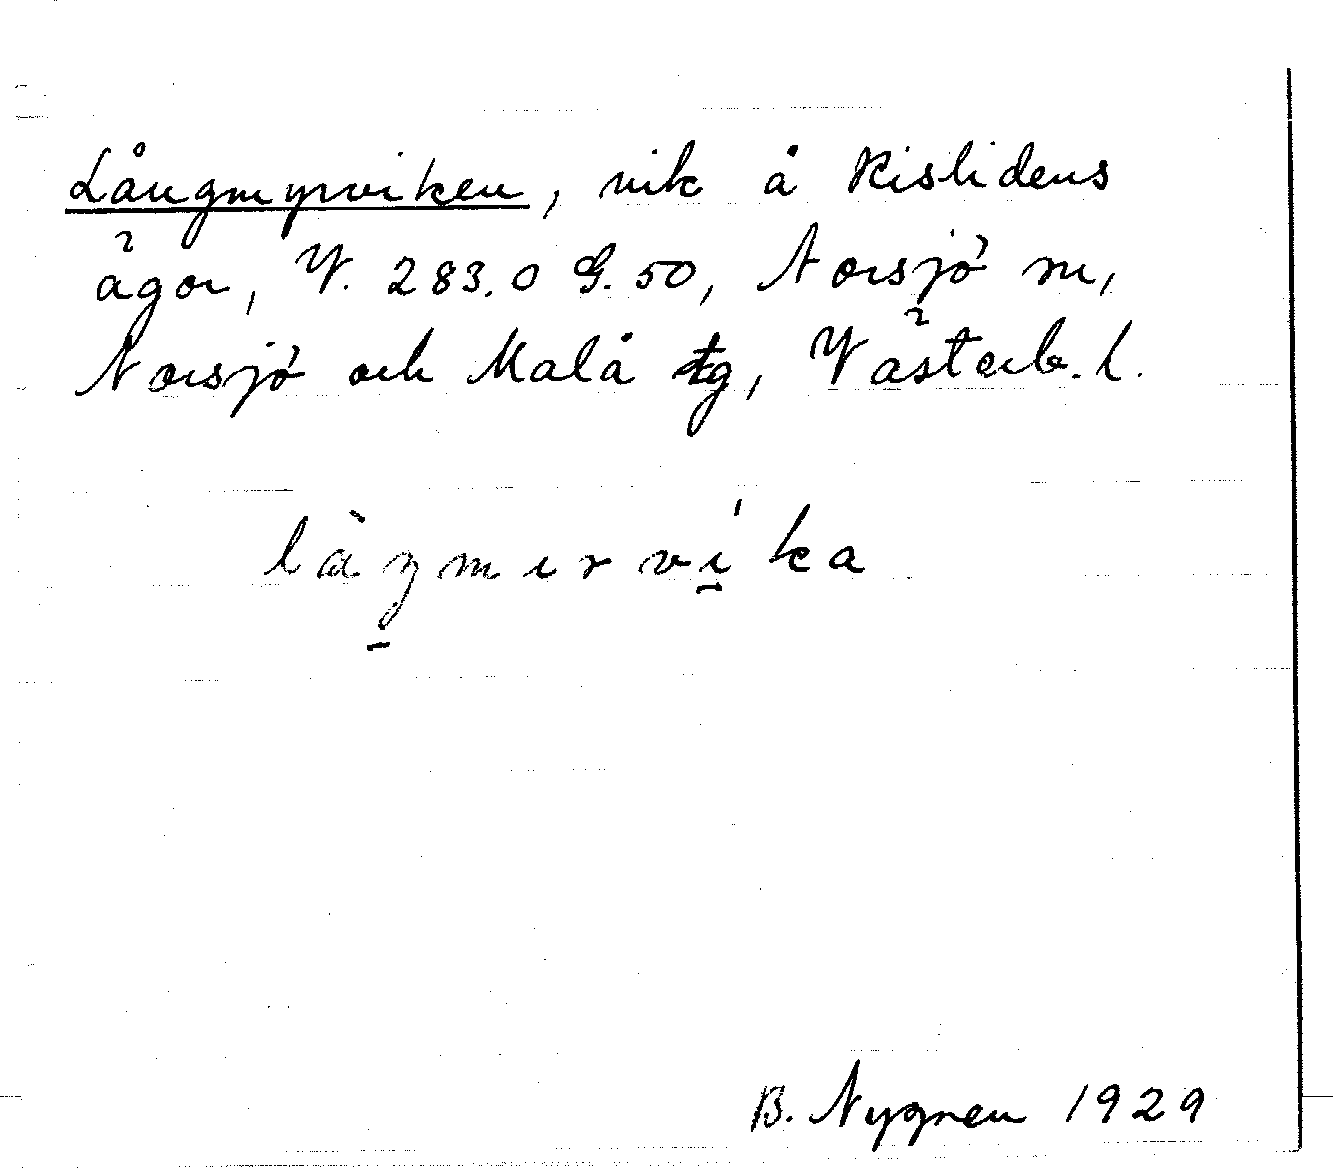 Långmyrviken, vik å Risliden s
ägor, V. 283.0 G. 50, Norsjö sn,
Norsjö och Malå tg, Västerb. l.
làŋmırvíka
B. Nygren 1929